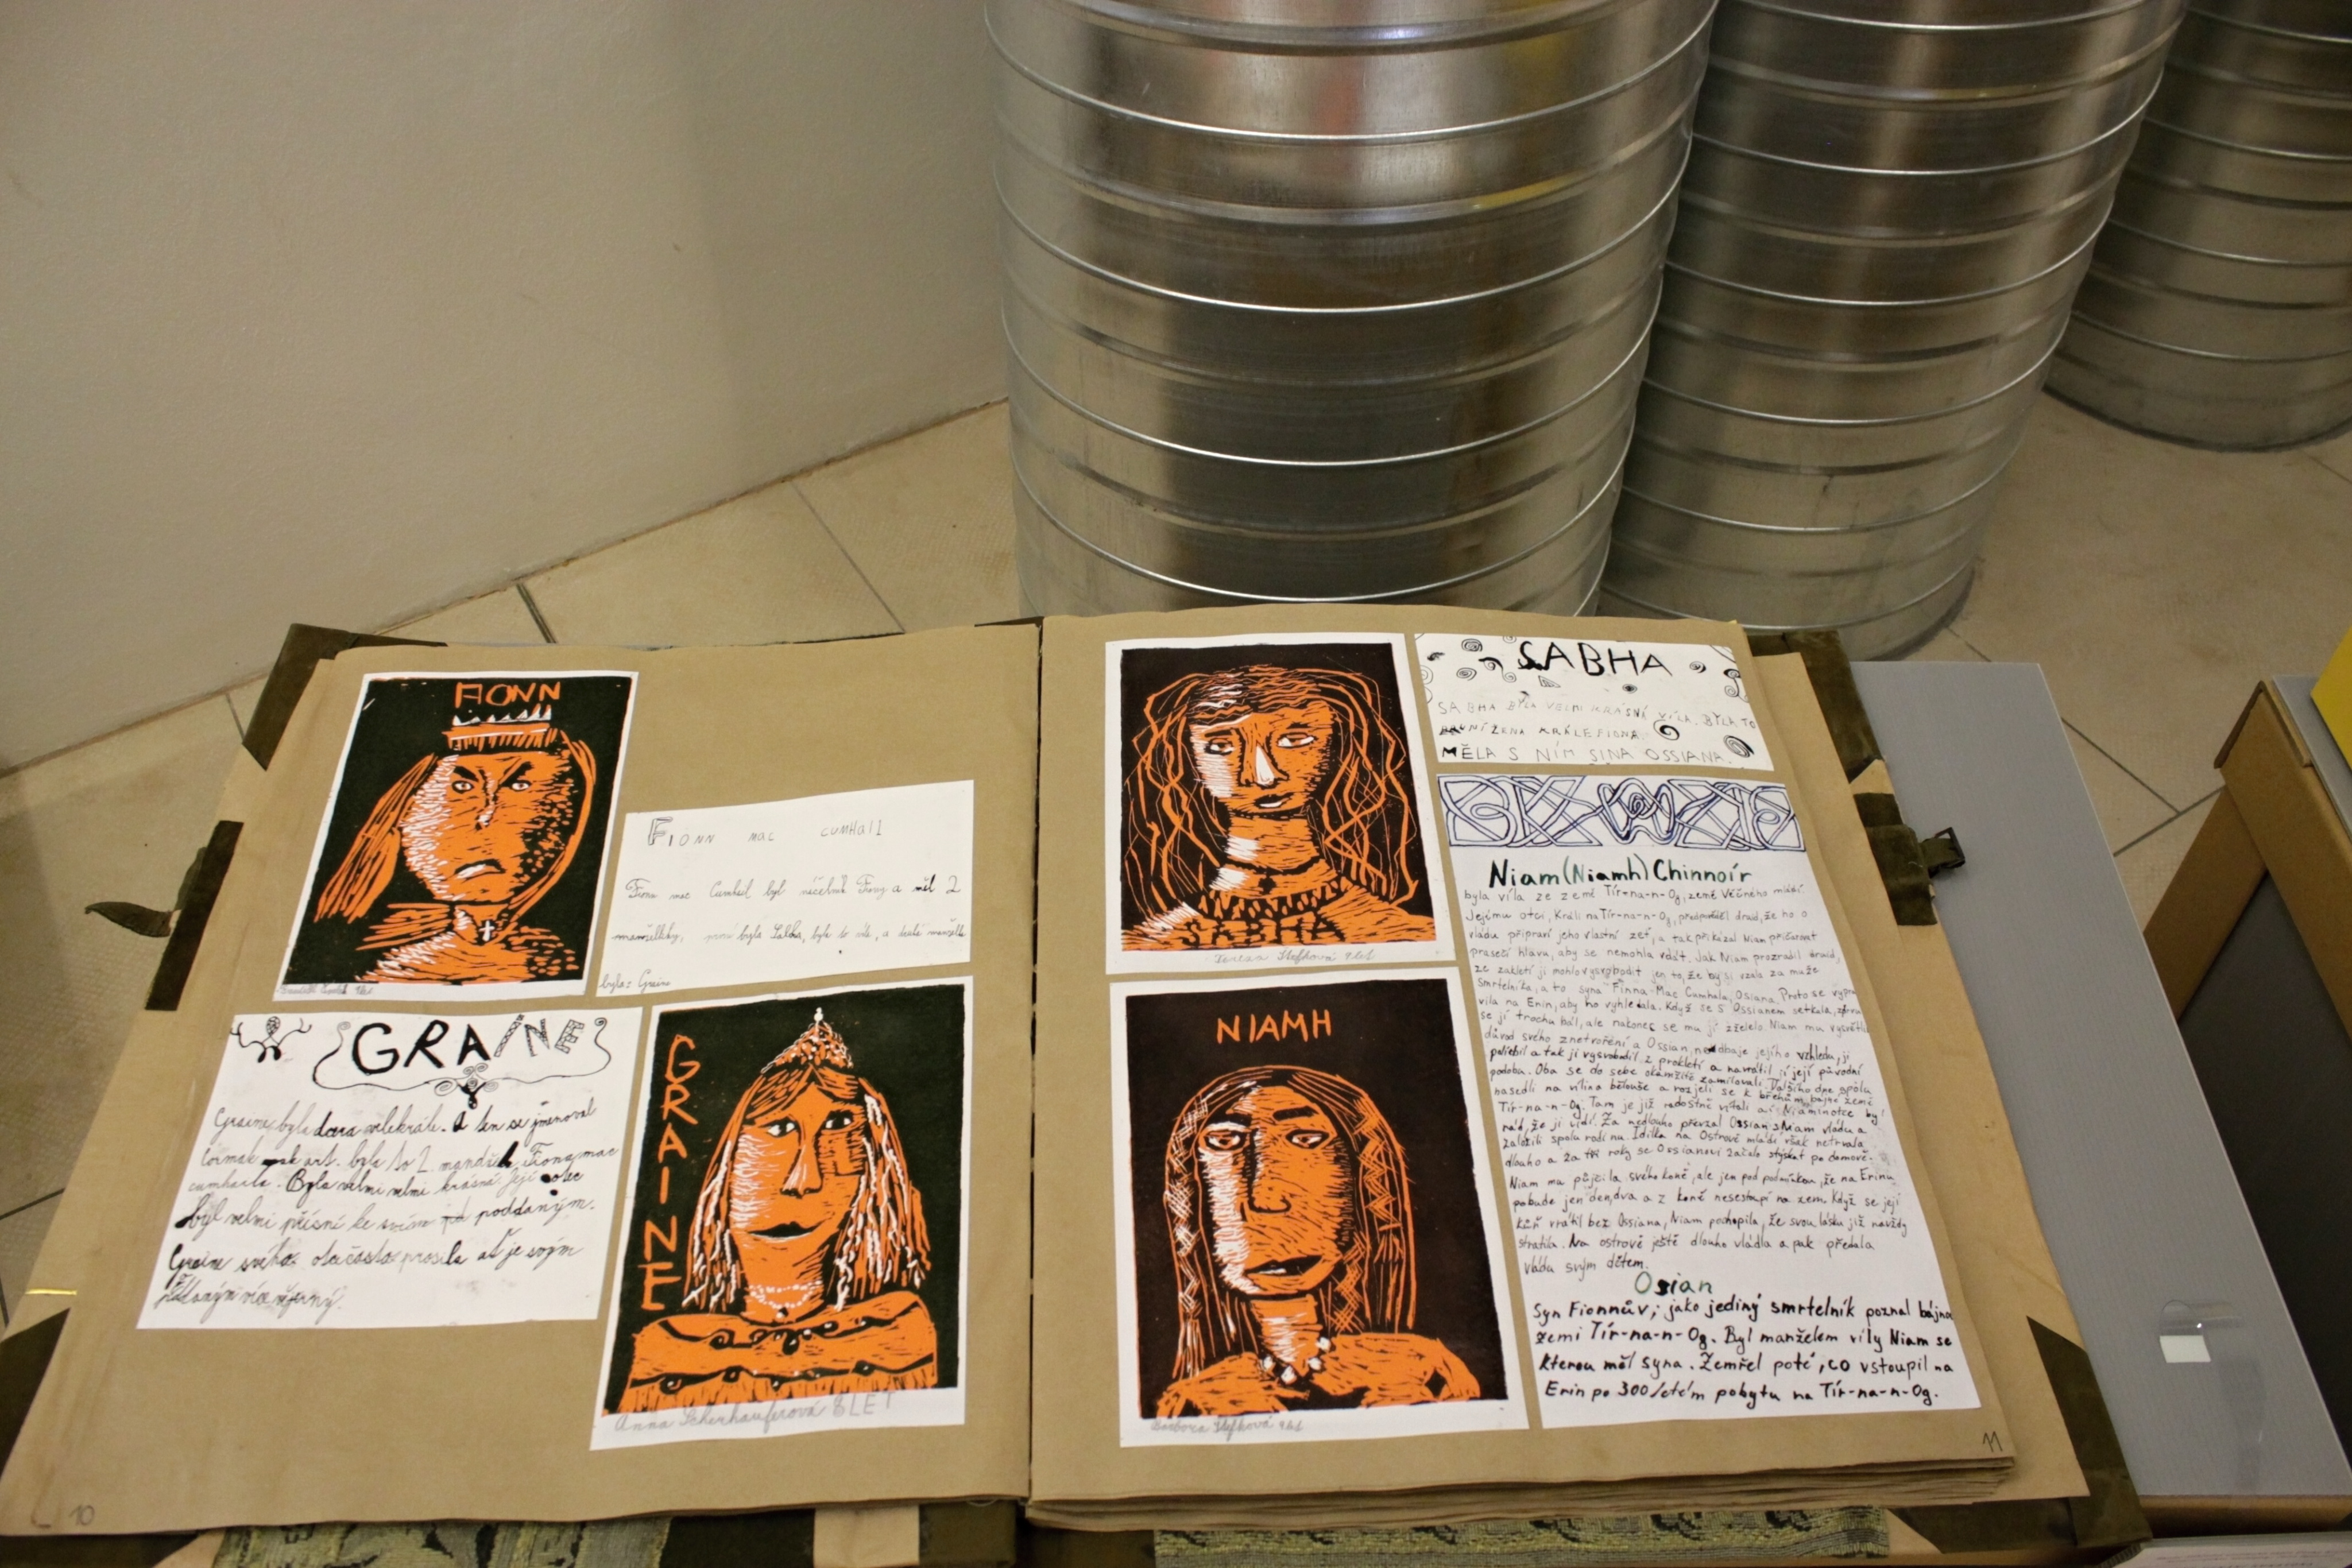 FIONN
Fionn mac CUMHAll
Fionn mac Cumhail byl náčelník Fiony a měl 2
manželky, první byla Sabha, byla to víla, a druhá manželka
byla: Graine
GRAINE
Graine byla dcera velekrále. A ten se jmenoval
Cormak mak art. byla to 2 manželka Fiona mac
cumhaila. Byla velmi velmi krásná Její otec
býl velmi přísní ke svím poddaným.
Graine svého otce často prosila ať je svým
GRAINE
Anna Scherhauferová 8 LET
10
Tereza Steflková 9 let
SABHA
SABHA BYLA VELMI KRÁSNÁ VÍLA. BYLA TO
PRVNÍ ŽENA KRÁLE FIONA
MĚLA S NÍM SINA OSSIANA.
NIAMH
Barbora Steflková 9 let
Niam (Niamh) Chinnoír
byla víla ze země Tír-na-n-Og, země Věčného mládí.
Jejímu otci, Králi na Tír-na-n-Og, předpověděl druid, že ho o
vládu připraví jeho vlastní zeť, a tak přikázal Niam přičarovat
prasečí hlavu, aby se nemohla vdát. Jak Niam prozradil druid,
ze zakletí jí mohlo vysvobodit jen to, že by si vzala za muže
smrtelníka, a to syna Finna-Mac Cumhala, Osiana. Proto se vypra
víla na Erin, aby ho vyhledala. Když se s Ossianem setkala, zprvu
se jí trochu bál, ale nakonec se mu jí zželelo. Niam mu vysvětli
důvod svého znetvoření a Ossian, nedbaje jejího vzhledu, ji
políbil a tak ji vysvobodil z prokletí a navrátil jí její původní
podobu. Oba se do sebe okamžitě zamilovali. Dalšího dne spolu
nasedli na vílina bělouše a rozjeli se k břehům bájné země
Tír-na-n-Og. Tam je již radostně vítali a i Niamin otec byl
rád, že ji vidí. Za nedlouho převzal Ossian s Niam vládu a
založili spolu rodinu. Idilka na Ostrově mládí však netrvala
dlouho a za tři roky se Ossianovi začalo stýskat po domově.
Niam mu půjčila svého koně, ale jen pod podmínkou, že na Erinu
pobude jen den, dva a z koně nesestoupí na zem. Když se její
kůň vrátil bez Ossiana, Niam pochopila, že svou lásku již navždy
stratila. Na ostrově ještě dlouho vládla a pak předala
vládu svým dětem.
Osian
Syn Fionnův, jako jediný smrtelník poznal bájnou
zemi Tír-na-n-Og. Byl manželem víly Niam se
kterou měl syna. Zemřel poté, co vstoupil na
Erin po 300 letém pobytu na Tír-na-n-Og.
11